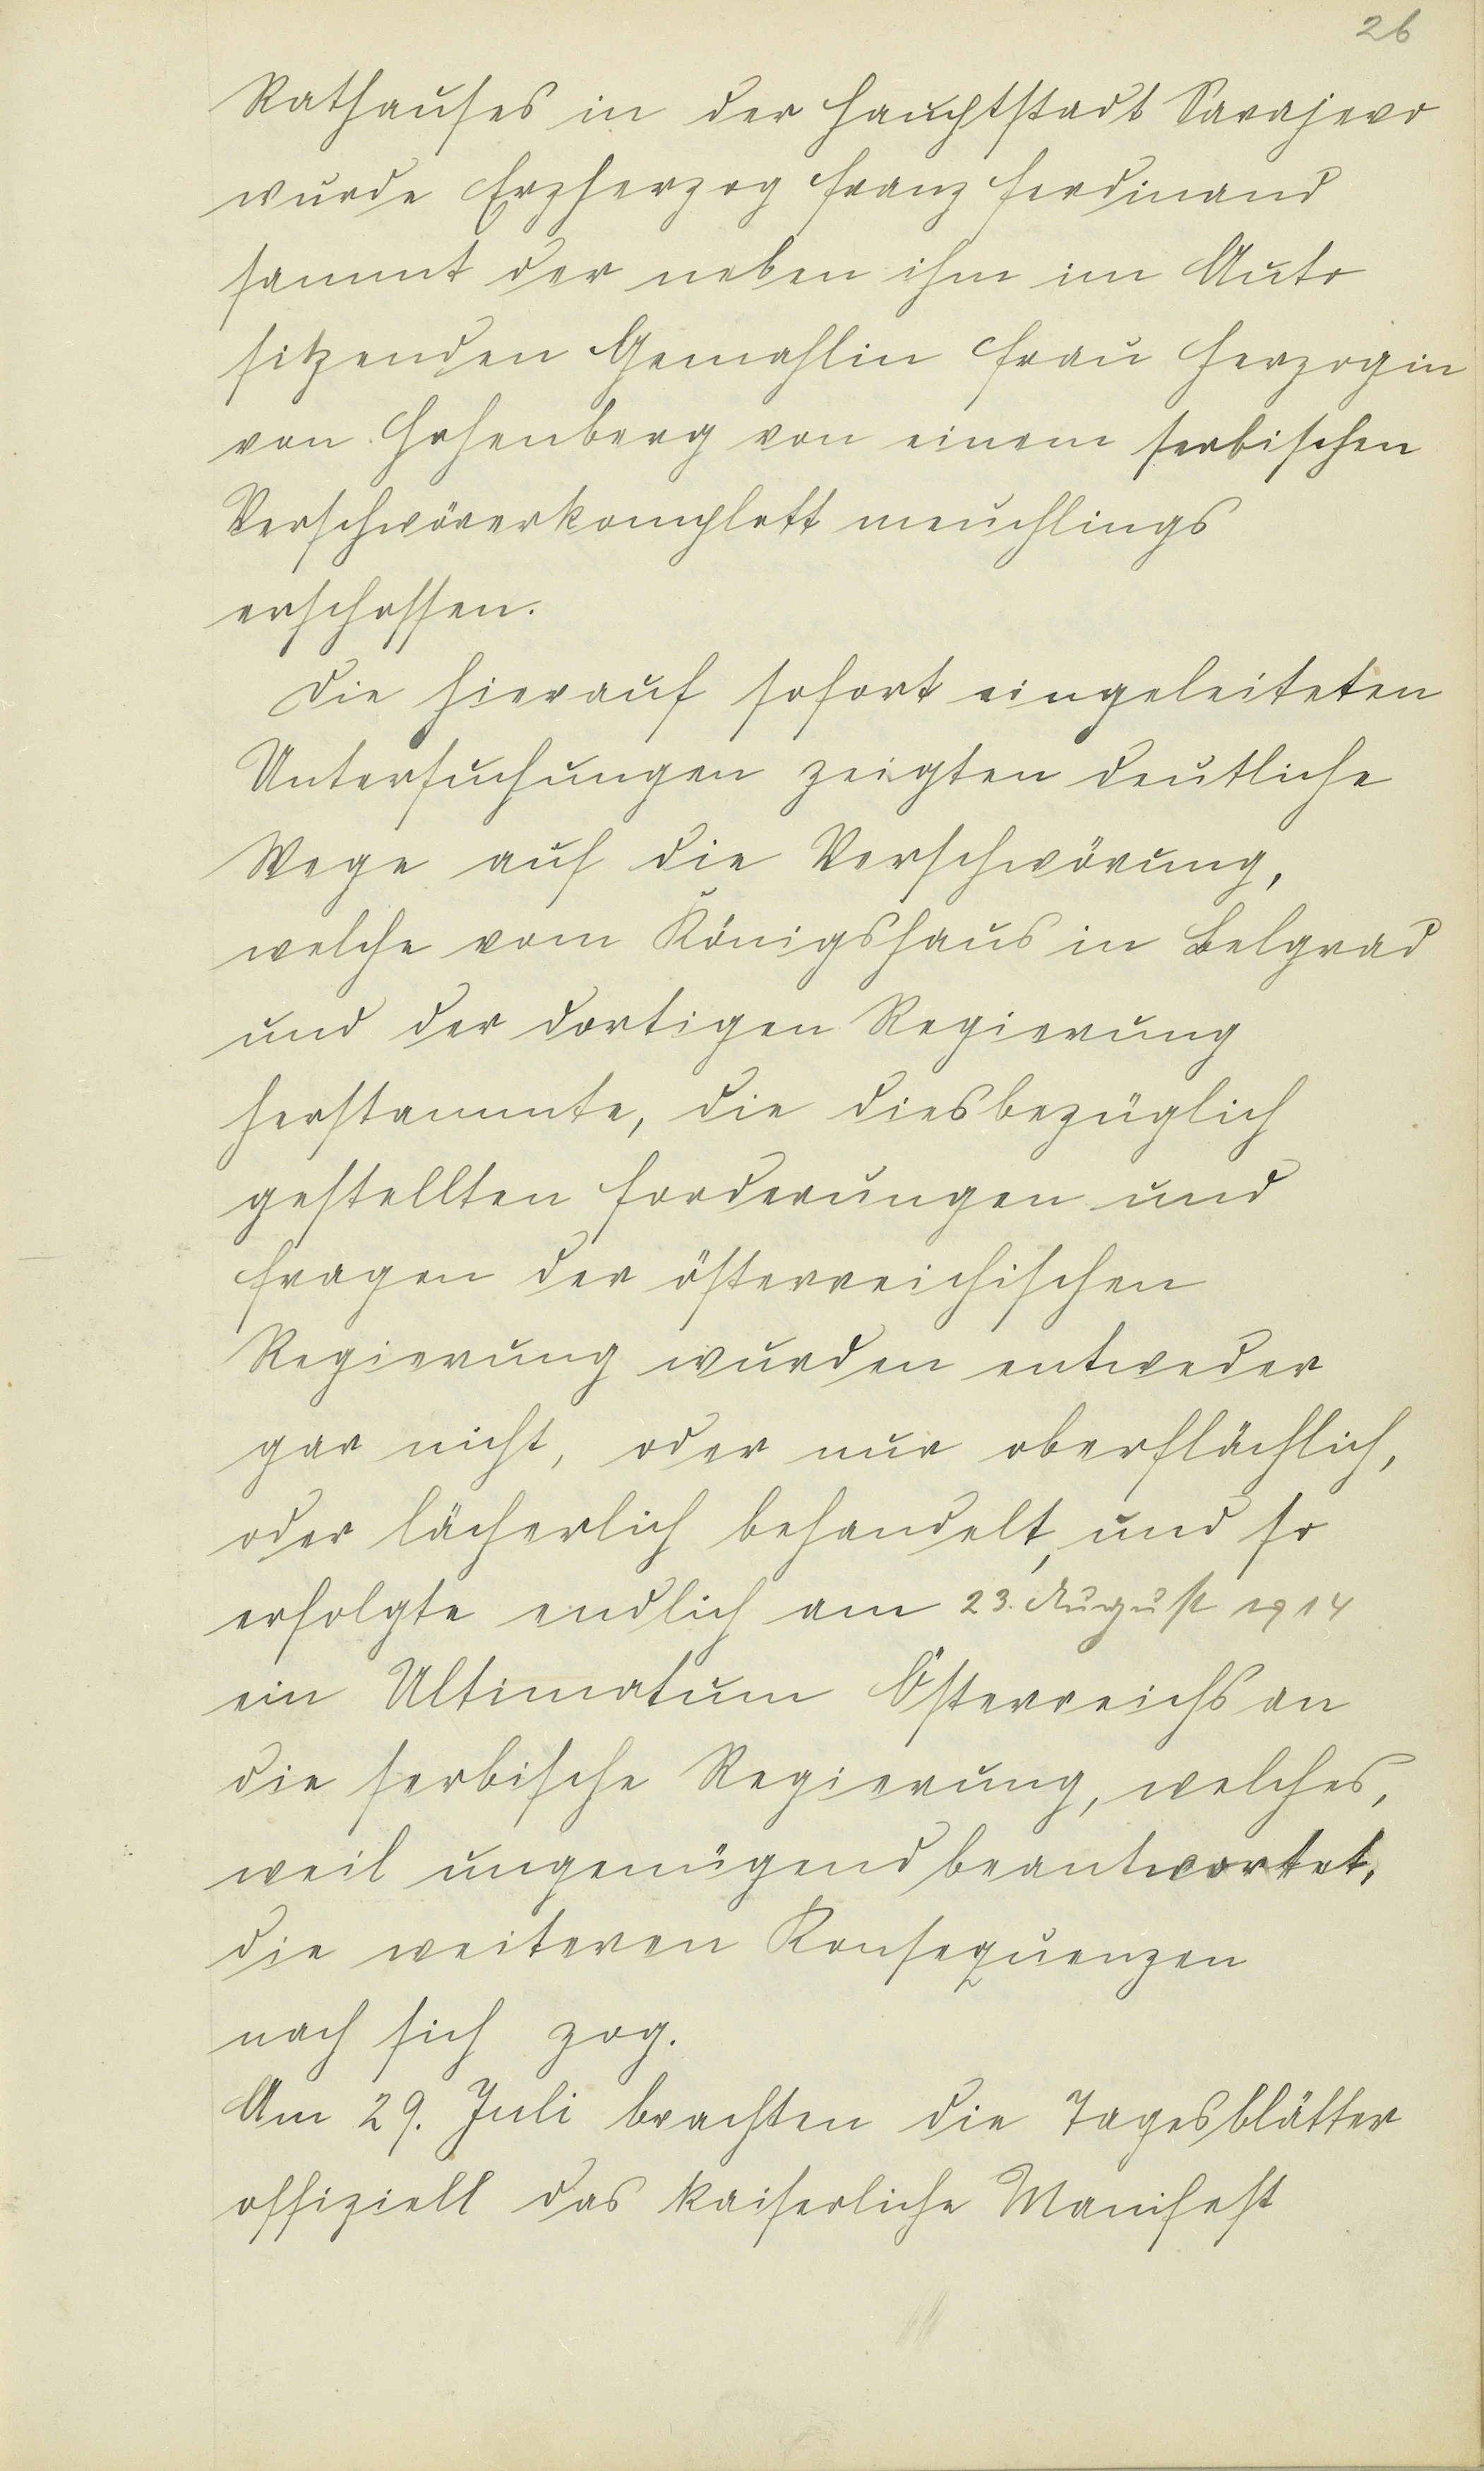 26
Rathauses in der Hauptstadt Sarajevo
wurde Erzherzog Franz Ferdinand
sammt der neben ihm im Auto
sitzenden Gemahlin Frau Herzogin
von Hohenberg von einem serbischen
Verschwörerkomplott meuchlings
erschossen.
Die hierauf sofort eingeleiteten
Untersuchungen zeigten deutliche
Wege auf die Verschwörung,
welche vom Königshaus in Belgrad
und der dortigen Regierung
herstammte, die diesbezüglich
gestellten Forderungen und
Fragen der österreichischen
Regierung wurden entweder
gar nicht, oder nur oberflächlich,
oder lächerlich behandelt, und so
erfolgte endlich am 23. August 1914
ein Ultimatum Österreichs an
die serbische Regierung, welches,
weil ungenügend beantwortet,
die weiteren Konsequenzen
nach sich zog.
Am 29. Juli brachten die Tagesblätter
offiziell das kaiserliche Manifest